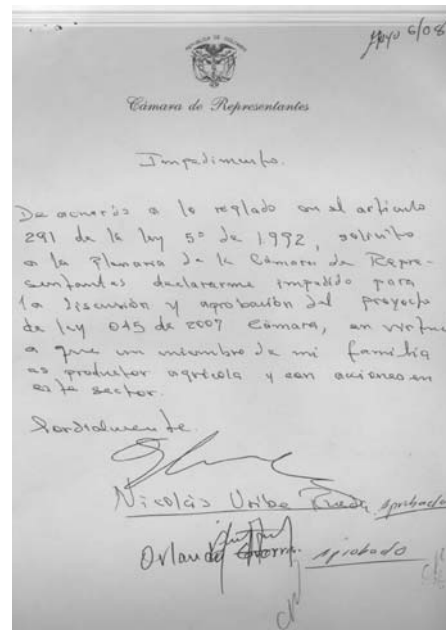 Mayo 6/08
Cámara de Representantes
Impedimento.
De acuerdo a lo reglado en el artículo
291 de la ley 5ª de 1992, solicito
a la Plenaria de la Cámara de Repre-
sentantes declararme impedido para
la discusión y aprobación del proyecto
de ley 045 de 2007 Cámara, en virtud
a que un miembro de mi familia
es productor agrícola y con acciones en
este sector.
Cordialmente.
Nicolás Uribe Rueda Aprobado
Orlando Aprobado